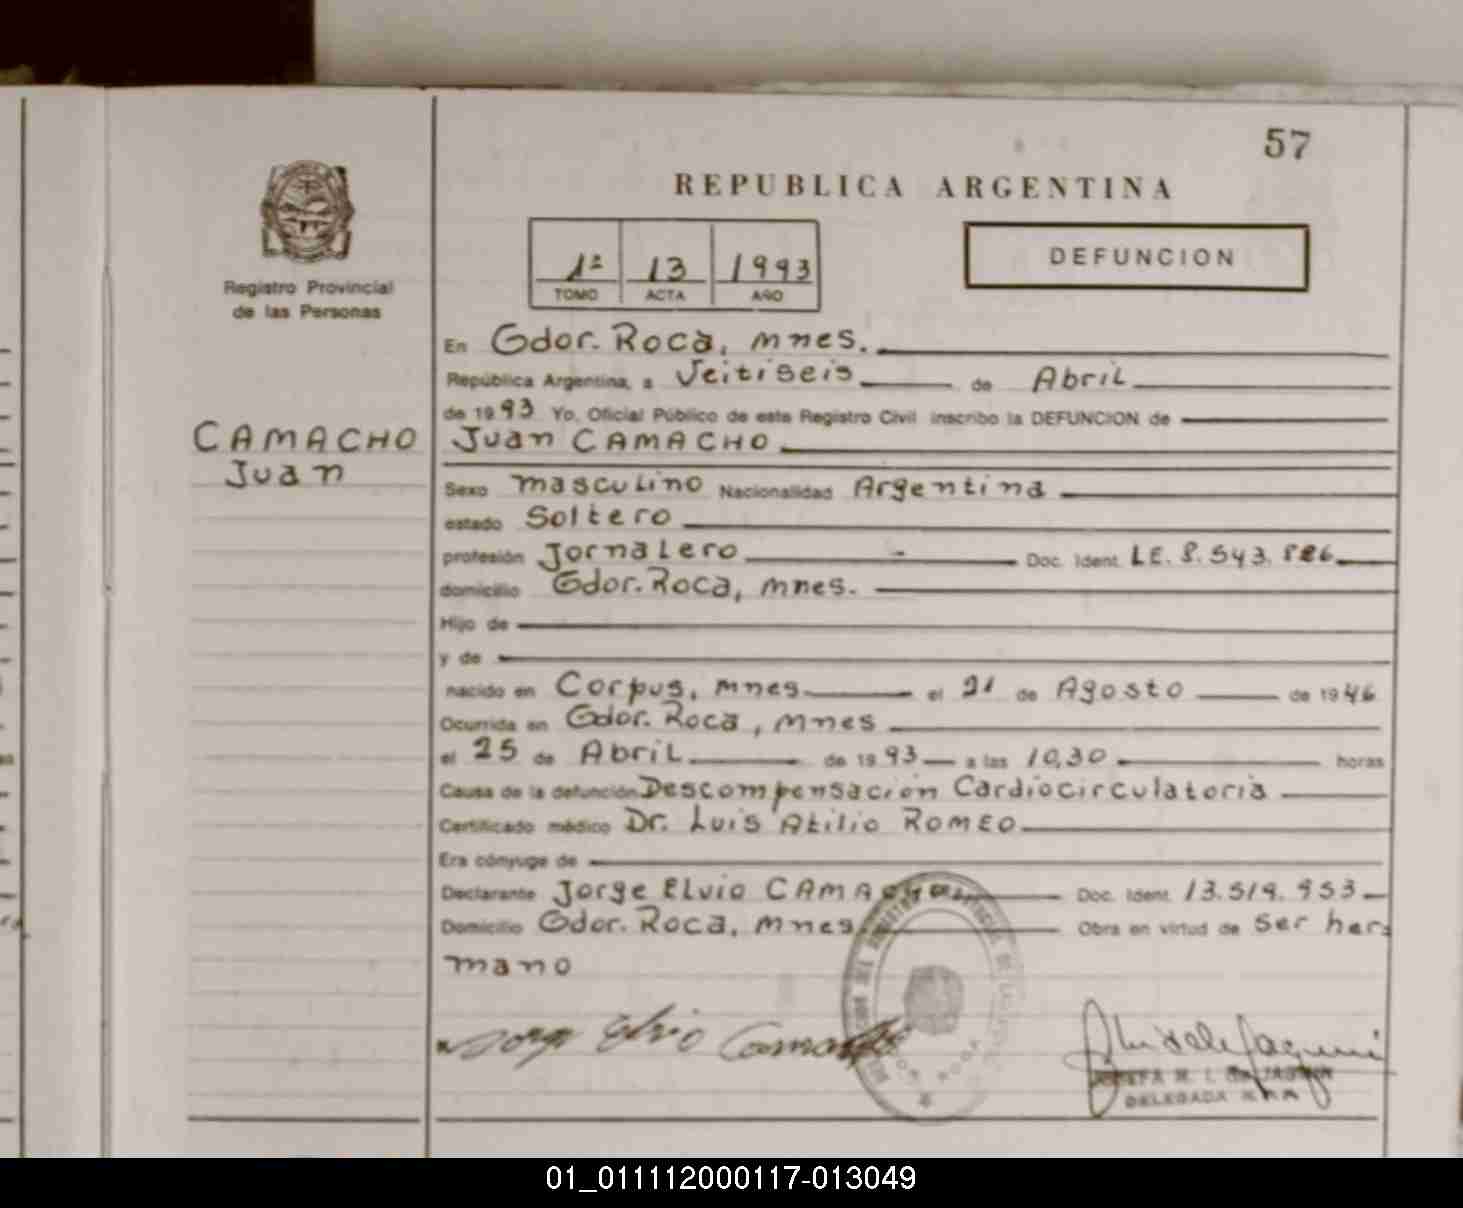 57
REPUBLICA ARGENTINA
1ª 13 1993
TOMO ACTA AÑO
DEFUNCION
Registro Provincial
de las Personas
CAMACHO
Juan
En Gdor. Roca, mnes.
República Argentina, a Veitiseis de Abril
de 1993 Yo, Oficial Público de este Registro Civil inscribo la DEFUNCION de
Juan CAMACHO
Sexo masculino Nacionalidad Argentina
estado Soltero
profesión Jornalero Doc. Ident. LE. 8.543.826
domicilio Gdor. Roca, mnes.
Hijo de
y de
nacido en Corpus, mnes el 21 de Agosto de 1946
Ocurrida en Gdor. Roca, mnes
el 25 de Abril de 1993 a las 10,30 horas
Causa de la defunción Descompensación Cardiocirculatoria
Certificado médico Dr. Luis Atilio ROMEO
Era cónyuge de
Declarante Jorge Elvio CAMACHO Doc. Ident. 13.519.953
Domicilio Gdor. Roca, mnes Obra en virtud de ser her-
mano
Jorge Elvio Camacho
DELEGADA
01_011112000117-013049